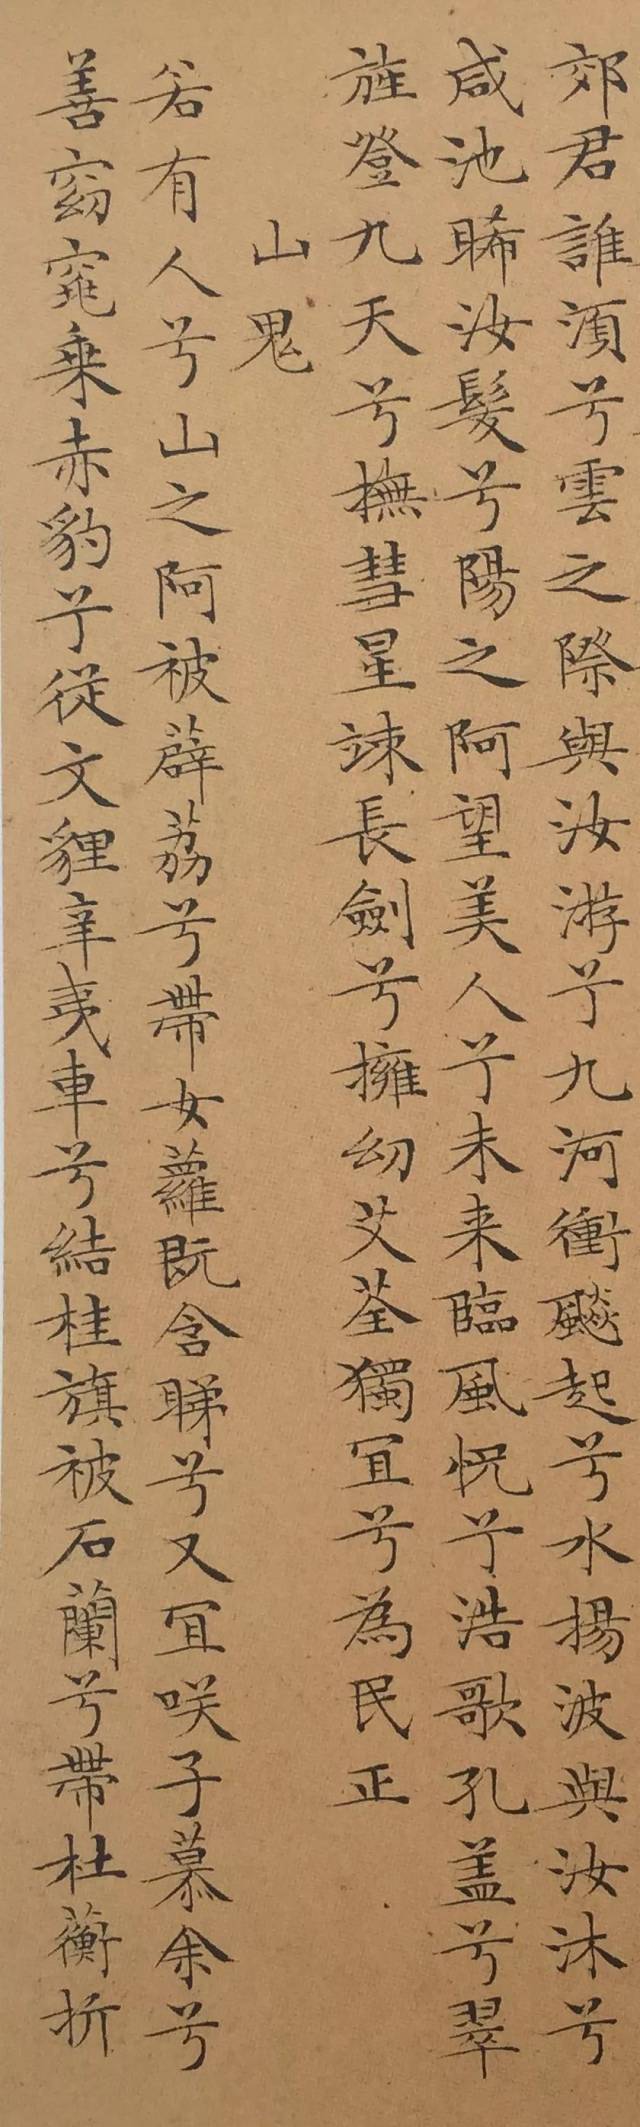 郊君誰須兮雲之際與汝游兮九河衝飈起兮水揚波與汝沐兮
咸池晞汝髮兮陽之阿望美人兮未来臨風怳兮浩歌孔盖兮翠
旌登九天兮撫彗星竦長劍兮擁幼艾荃獨宜兮為民正
山鬼
若有人兮山之阿被薜荔兮帶女蘿既含睇兮又宜咲子慕余兮
善窈窕乗赤豹兮從文貍辛夷車兮結桂旗被石蘭兮帶杜蘅折